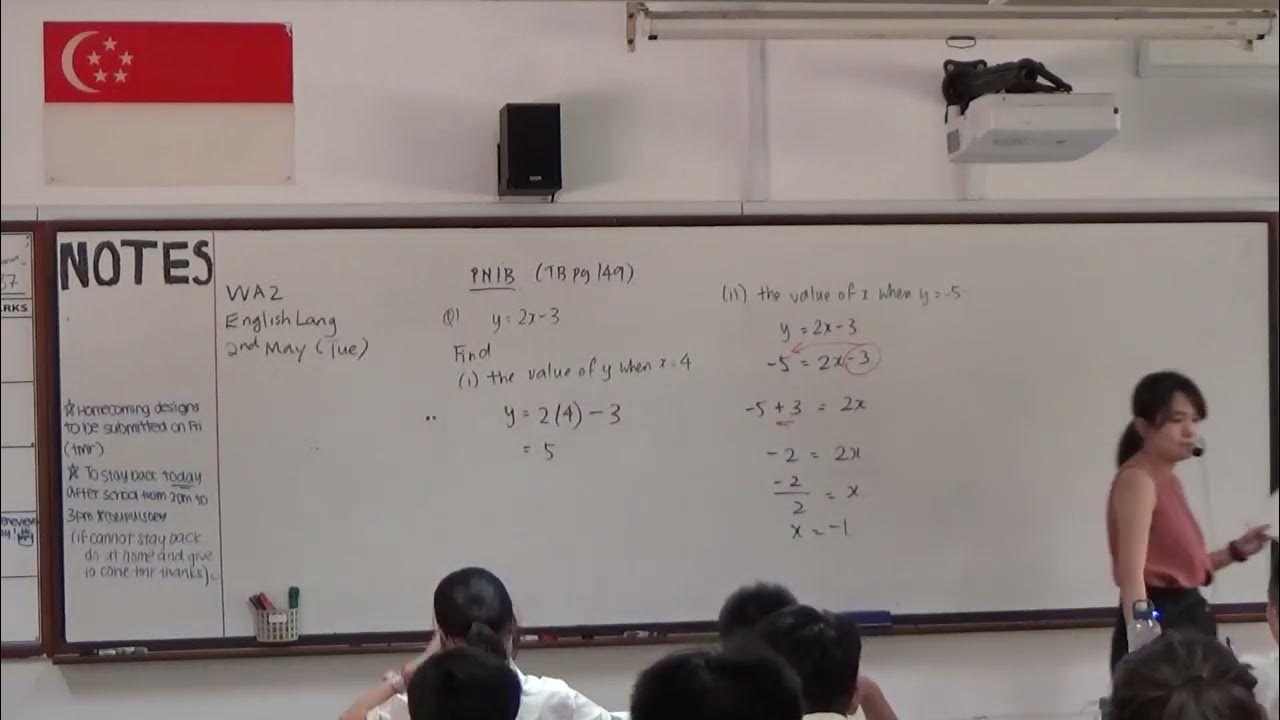 NOTES
★Homecoming designs
to be submitted on Fri
(tmr)
★ To stay back today
after school from 2pm to
3pm
(if cannot stay back
do at home and give
to tmr thanks)
WA2
English Lang
2nd May (Tue)
PN1B (TB pg 149)
Q1 y = 2x-3
Find
(i) the value of y when x = 4
y = 2(4) - 3
= 5
(ii) the value of x when y = -5
y = 2x-3
-5 = 2x-3
-5 + 3 = 2x
-2 = 2x
-2/2 = x
x = -1
37
RKS